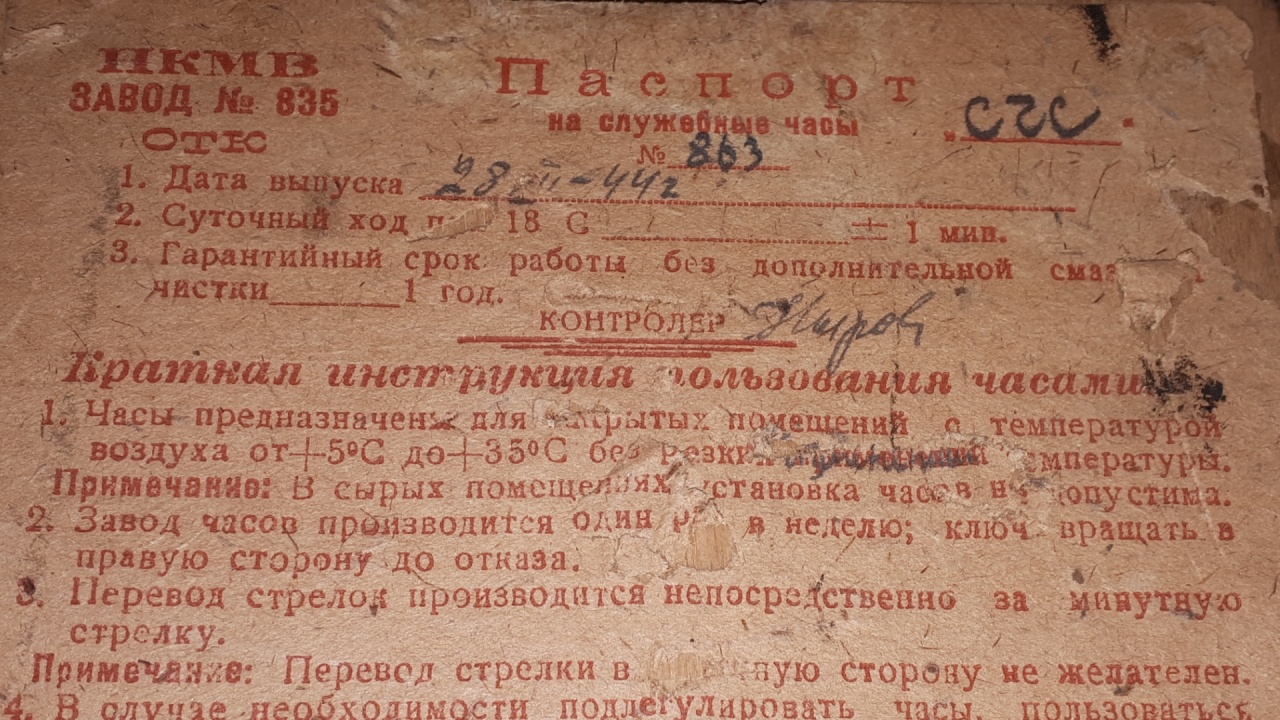 НКМВ
ЗАВОД № 835
ОТК
Паспорт
на служебные часы „СЧС“
№ 863
1. Дата выпуска 28 -44г
2. Суточный ход 18 С ± 1 мин.
3. Гарантийный срок работы без дополнительной
чистки 1 год.
КОНТРОЛЕР
Краткая инструкция пользования часами
1. Часы предназначены для закрытых помещений с температурой
воздуха от+5°С до+35°С без резких температуры.
Примечание: В сырых помещениях установка часов не допустима.
2. Завод часов производится один раз в неделю; ключ вращать в
правую сторону до отказа.
3. Перевод стрелок производится непосредственно за минутную
стрелку.
Примечание: Перевод стрелки в сторону не желателен.
4. В случае необходимости подрегулировать часы, пользоваться